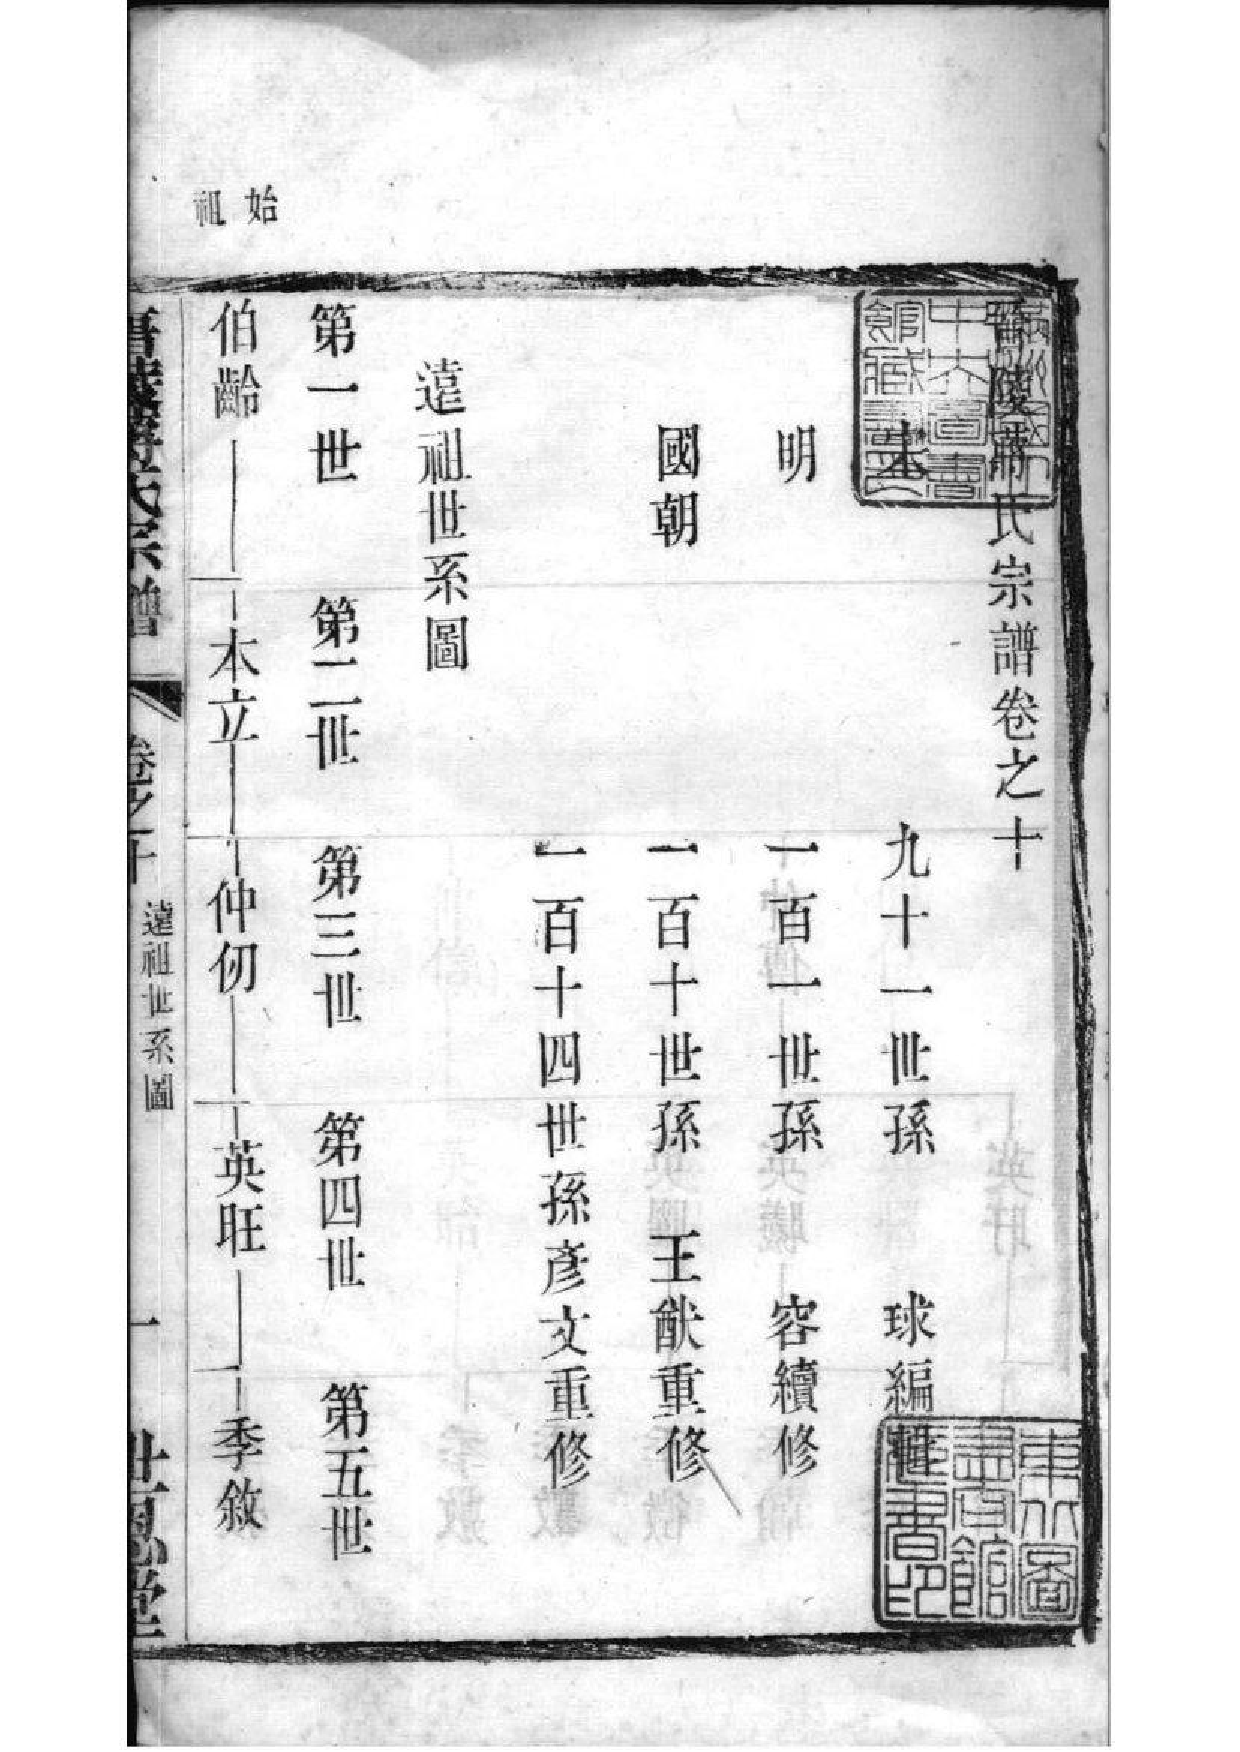 晉陵蔣氏宗譜卷之十
宋
九十一世孫 球編輯
明
一百一世孫 容續修
國朝
一百十世孫 王猷重修
一百十四世孫彥文重修
遠祖世系圖
第一世 第二世 第三世 第四世 第五世
始祖
伯齡 本立 仲仞 英旺 季敘
晉陵蔣氏宗譜 卷之十 遠祖世系圖 一 世恩堂
東北圖書館藏書印